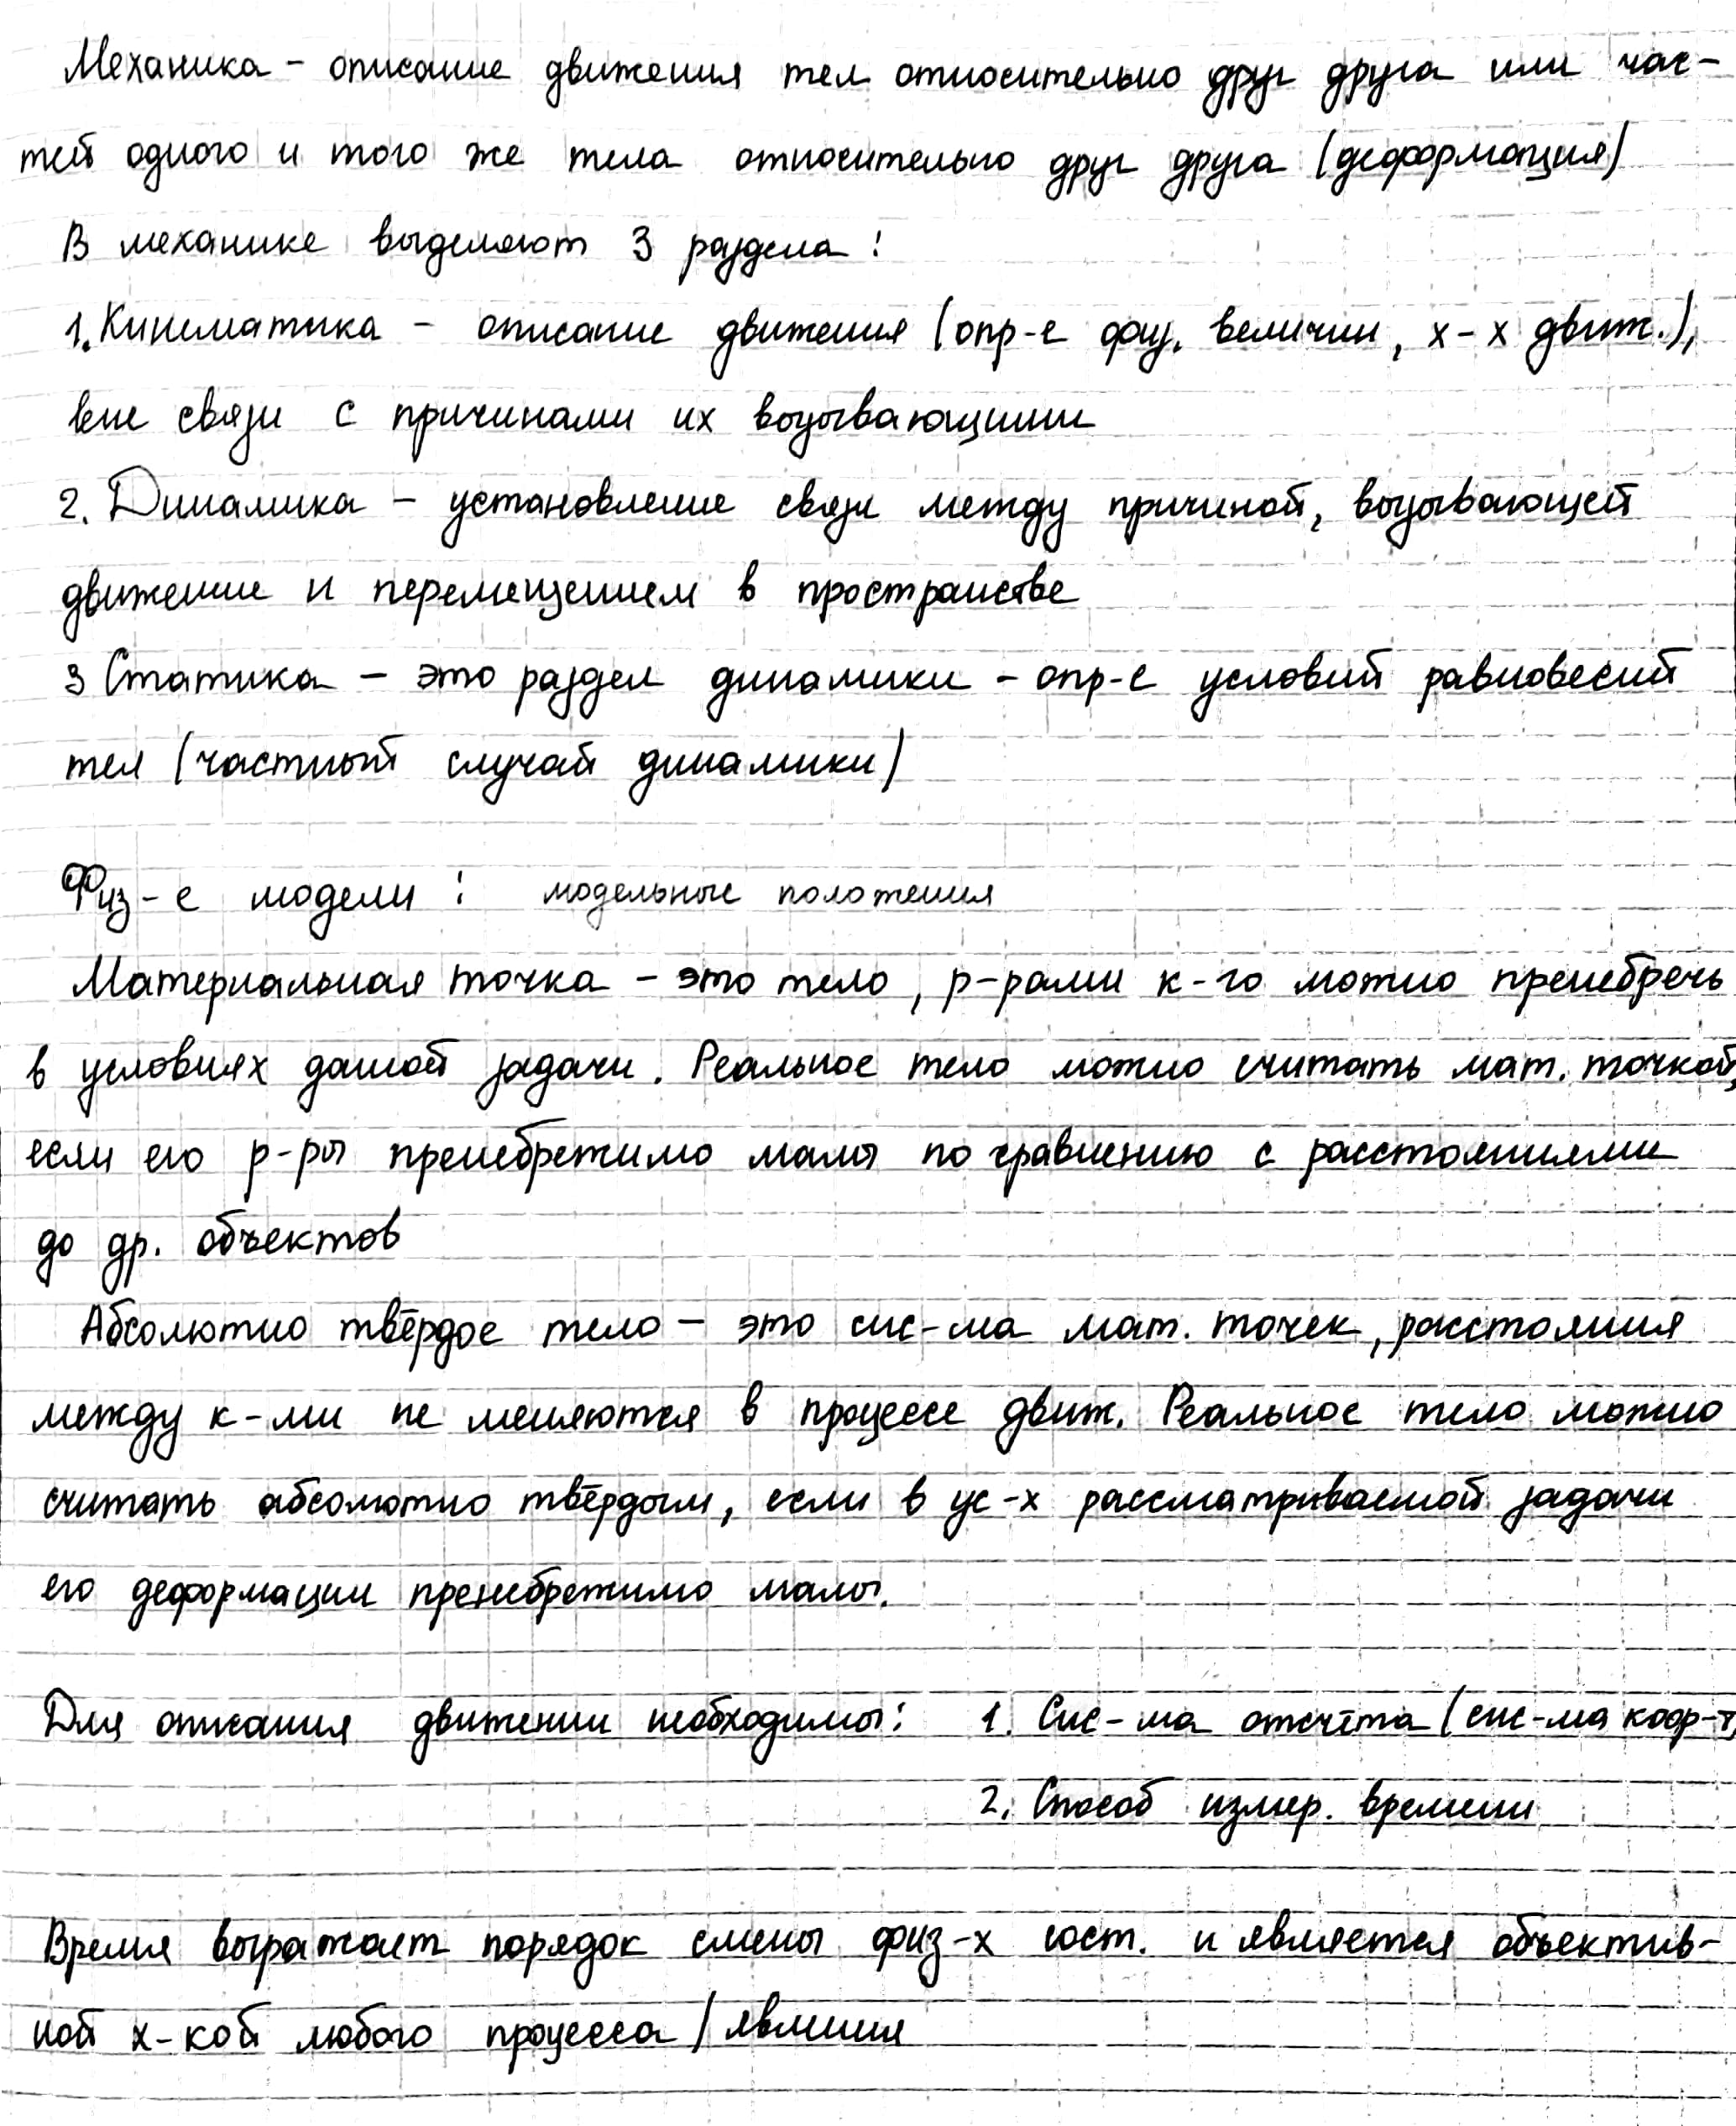 Механика - описание движения тел относительно друг друга или час-
тей одного и того же тела относительно друг друга (деформация)
В механике выделяют 3 раздела:
1. Кинематика - описание движения (опр-е физ. величин, х-х движ.),
вне связи с причинами их вызывающими
2. Динамика - установление связи между причиной, вызывающей
движение и перемещением в пространстве
3 Статика - это раздел динамики - опр-е условий равновесий
тел (частный случай динамики)
Физ-е модели: модельные положения
Материальная точка - это тело, р-рами к-го можно пренебречь
в условиях данной задачи. Реальное тело можно считать мат. точкой,
если его р-ры пренебрежимо малы по сравнению с расстояниями
до др. объектов
Абсолютно твёрдое тело - это сис-ма мат. точек, расстояния
между к-ми не меняются в процессе движ. Реальное тело можно
считать абсолютно твёрдым, если в ус-х рассматриваемой задачи
его деформации пренебрежимо малы.
Для описания движении необходимы: 1. Сис-ма отсчёта (сис-ма коор-т)
2. Способ измер. времени
Время выражает порядок смены физ-х сост. и является объектив-
ной х-кой любого процесса / явления